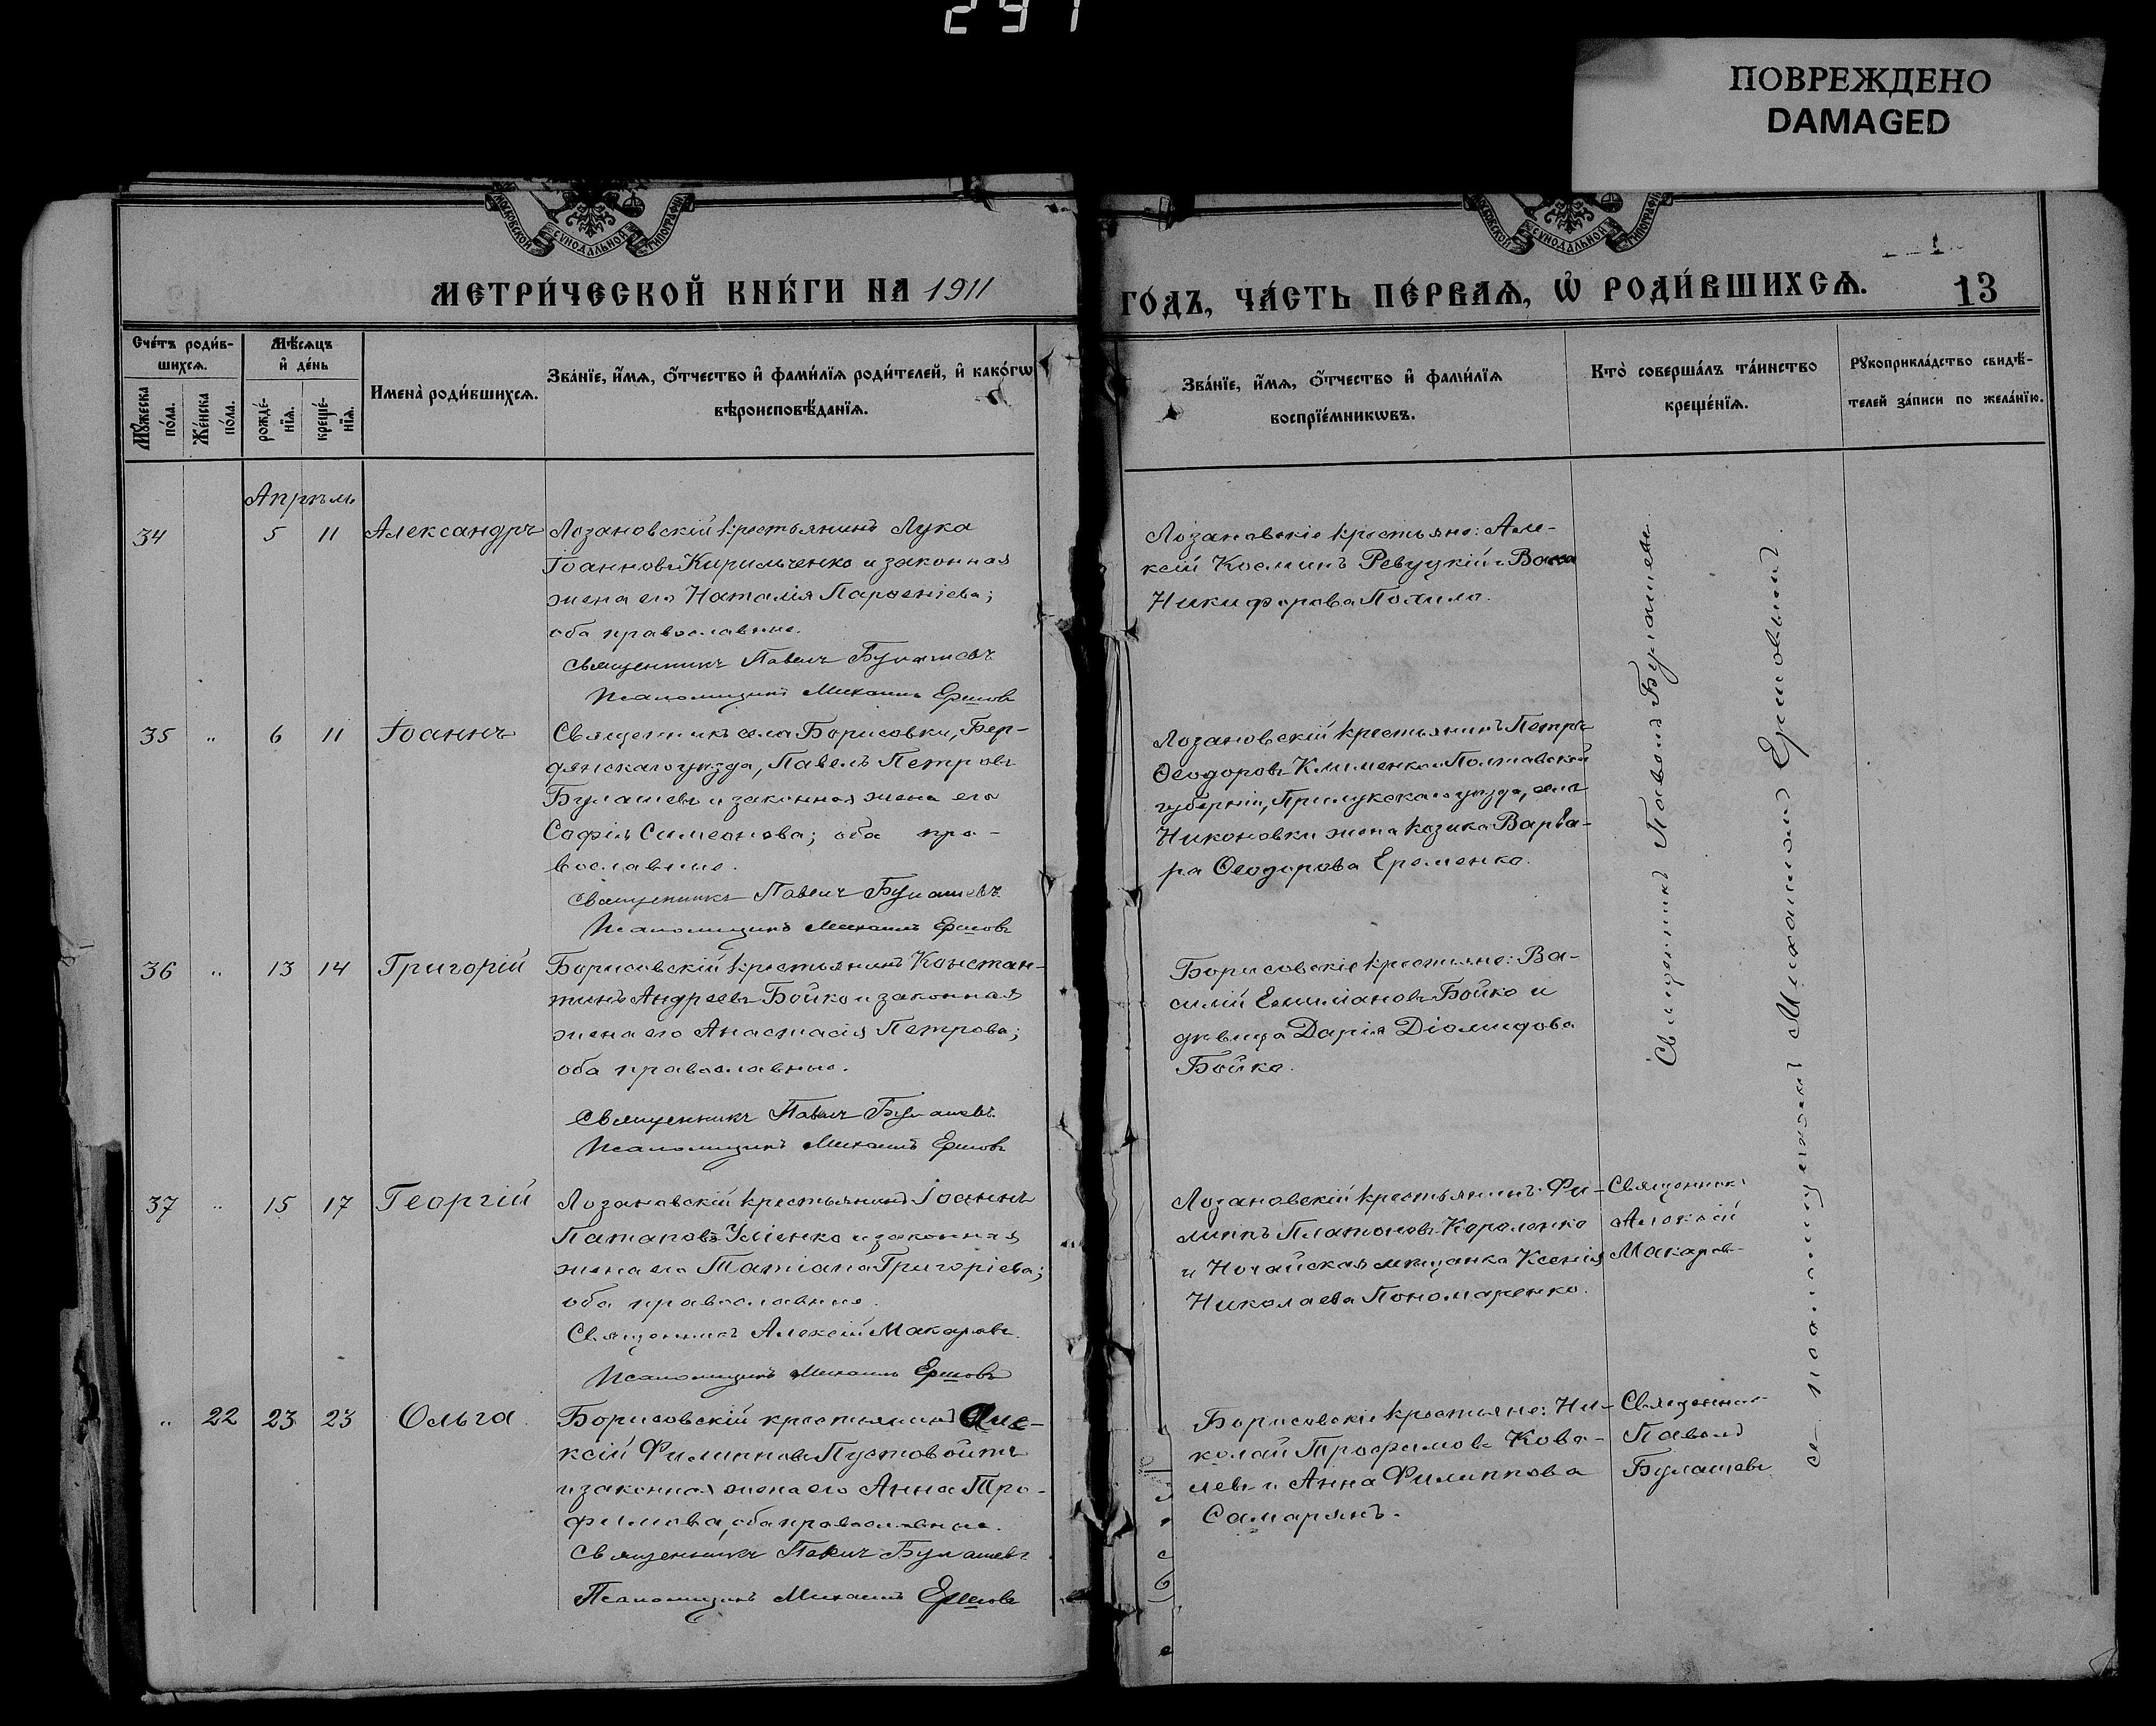 291
ПОВРЕЖДЕНО
DAMAGED
МОСКОВСКОЙ СѴНОДАЛЬНОЙ ТИПОГРАФІИ
МОСКОВСКОЙ СѴНОДАЛЬНОЙ ТИПОГРАФІИ
МЕТРИ́ЧЕСКОЙ КНИ́ГИ НА 1911
ГО́ДЪ, ЧА́СТЬ ПЕ́РВАѦ, Ѡ҆ РОДИ́ВШИХСѦ.
13
Сче́тъ роди́в-
шихсѧ.
Мꙋ́жеска по́ла.
Же́нска по́ла.
Мѣ́сѧцъ
и҆ де́нь
рожде́-
нїѧ.
креще́-
нїѧ.
Имена̀ роди́вшихсѧ.
Зва́нїе, и҆́мѧ, ѻ҆́тчество и҆ фами́лїѧ роди́телей, и҆ како́гѡ
вѣроисповѣ́данїѧ.
Зва́нїе, и҆́мѧ, ѻ҆́тчество и҆ фами́лїѧ
воспрїе́мникѡвъ.
Кто̀ соверша́лъ та́инство
креще́нїѧ.
Рꙋкоприкла́дство свидѣ́-
телей за́писи по жела́нїю.
Апрѣль
34 5 11 Александръ
Лозановскій крестьянинъ Лука
Іоанновъ Кирильченко и законная
жена его Наталія Парѳеніева;
оба православные.
Священникъ Павелъ Булашевъ
Псаломщикъ Михаилъ Ершовъ
Лозановскіе крестьяне: Але-
ксій Косминъ Ревуцкій и
Никифорова
35 " 6 11 Іоаннъ
Священникъ села Борисовки, Бер-
дянскаго уѣзда, Павелъ Петровъ
Булашевъ и законная жена его
Софія Симеонова; оба пра-
вославные.
Священникъ Павелъ Булашевъ
Псаломщикъ Михаилъ Ершовъ
Лозановскій крестьянинъ Петръ
Ѳеодоровъ Клименко и Полтавской
губерніи, Прилукскаго уѣзда, села
Никоновки жена козака Варва-
ра Ѳеодорова Еременко.
36 " 13 14 Григорій
Борисовскій крестьянинъ Констан-
тинъ Андреевъ Бойко и законная
жена его Анастасія Петрова;
оба православные.
Священникъ Павелъ Булашевъ
Псаломщикъ Михаилъ Ершовъ
Борисовскіе крестьяне: Ва-
силій Емиліановъ Бойко и
дѣвица Дарія Діомидова
Бойко.
Священникъ Павелъ Булашевъ
съ псаломщикомъ Михаиломъ Ершовымъ
37 " 15 17 Георгій
Лозановскій крестьянинъ Іоаннъ
Потаповъ и законная
жена его Татіана Григоріева;
оба православные.
Священникъ Алексій Макаровъ.
Псаломщикъ Михаилъ Ершовъ
Лозановскій крестьянинъ Фи-
липпъ Платоновъ Короленко
и Ногайская мѣщанка Ксенія
Николаева Пономаренко.
Священникъ
Алексій
Макаровъ
" 22 23 23 Ольга
Борисовскій крестьянинъ Але-
ксій Филипповъ Пустовойтъ
и законная жена его Анна Тро-
фимова, оба православные.
Священникъ Павелъ Булашевъ
Псаломщикъ Михаилъ Ершовъ
Борисовскіе крестьяне: Ни-
колай Трофимовъ Кова-
левъ и Анна Филиппова
Самарянъ.
Священникъ
Павелъ
Булашевъ